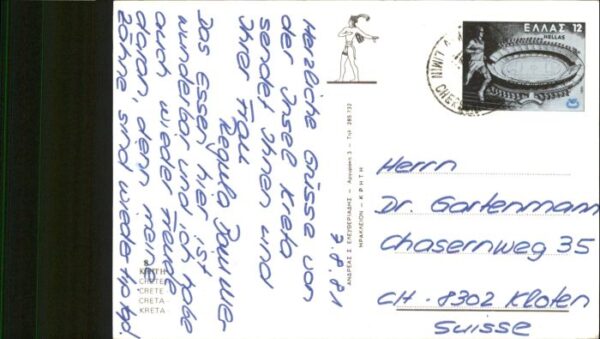 3.8.81
Herzliche Grüsse von
der Insel Kreta
sendet Ihnen und
Ihrer Frau
Regula
Das Essen hier ist
wunderbar und ich habe
auch wieder Freude
daran, denn meine
Zähne sind wieder
ΚΡΗΤΗ
CRETE
CRETE
CRETA
KRETA
ΑΝΔΡΕΑΣ Σ. ΕΛΕΥΘΕΡΙΑΔΗΣ
ΗΡΑΚΛΕΙΟΝ - ΚΡΗΤΗ
ΕΛΛΑΣ 12
HELLAS
LIMIN
CHER
Herrn
Dr. Gartenmann
Chasernweg 35
CH - 8302 Kloten
Suisse